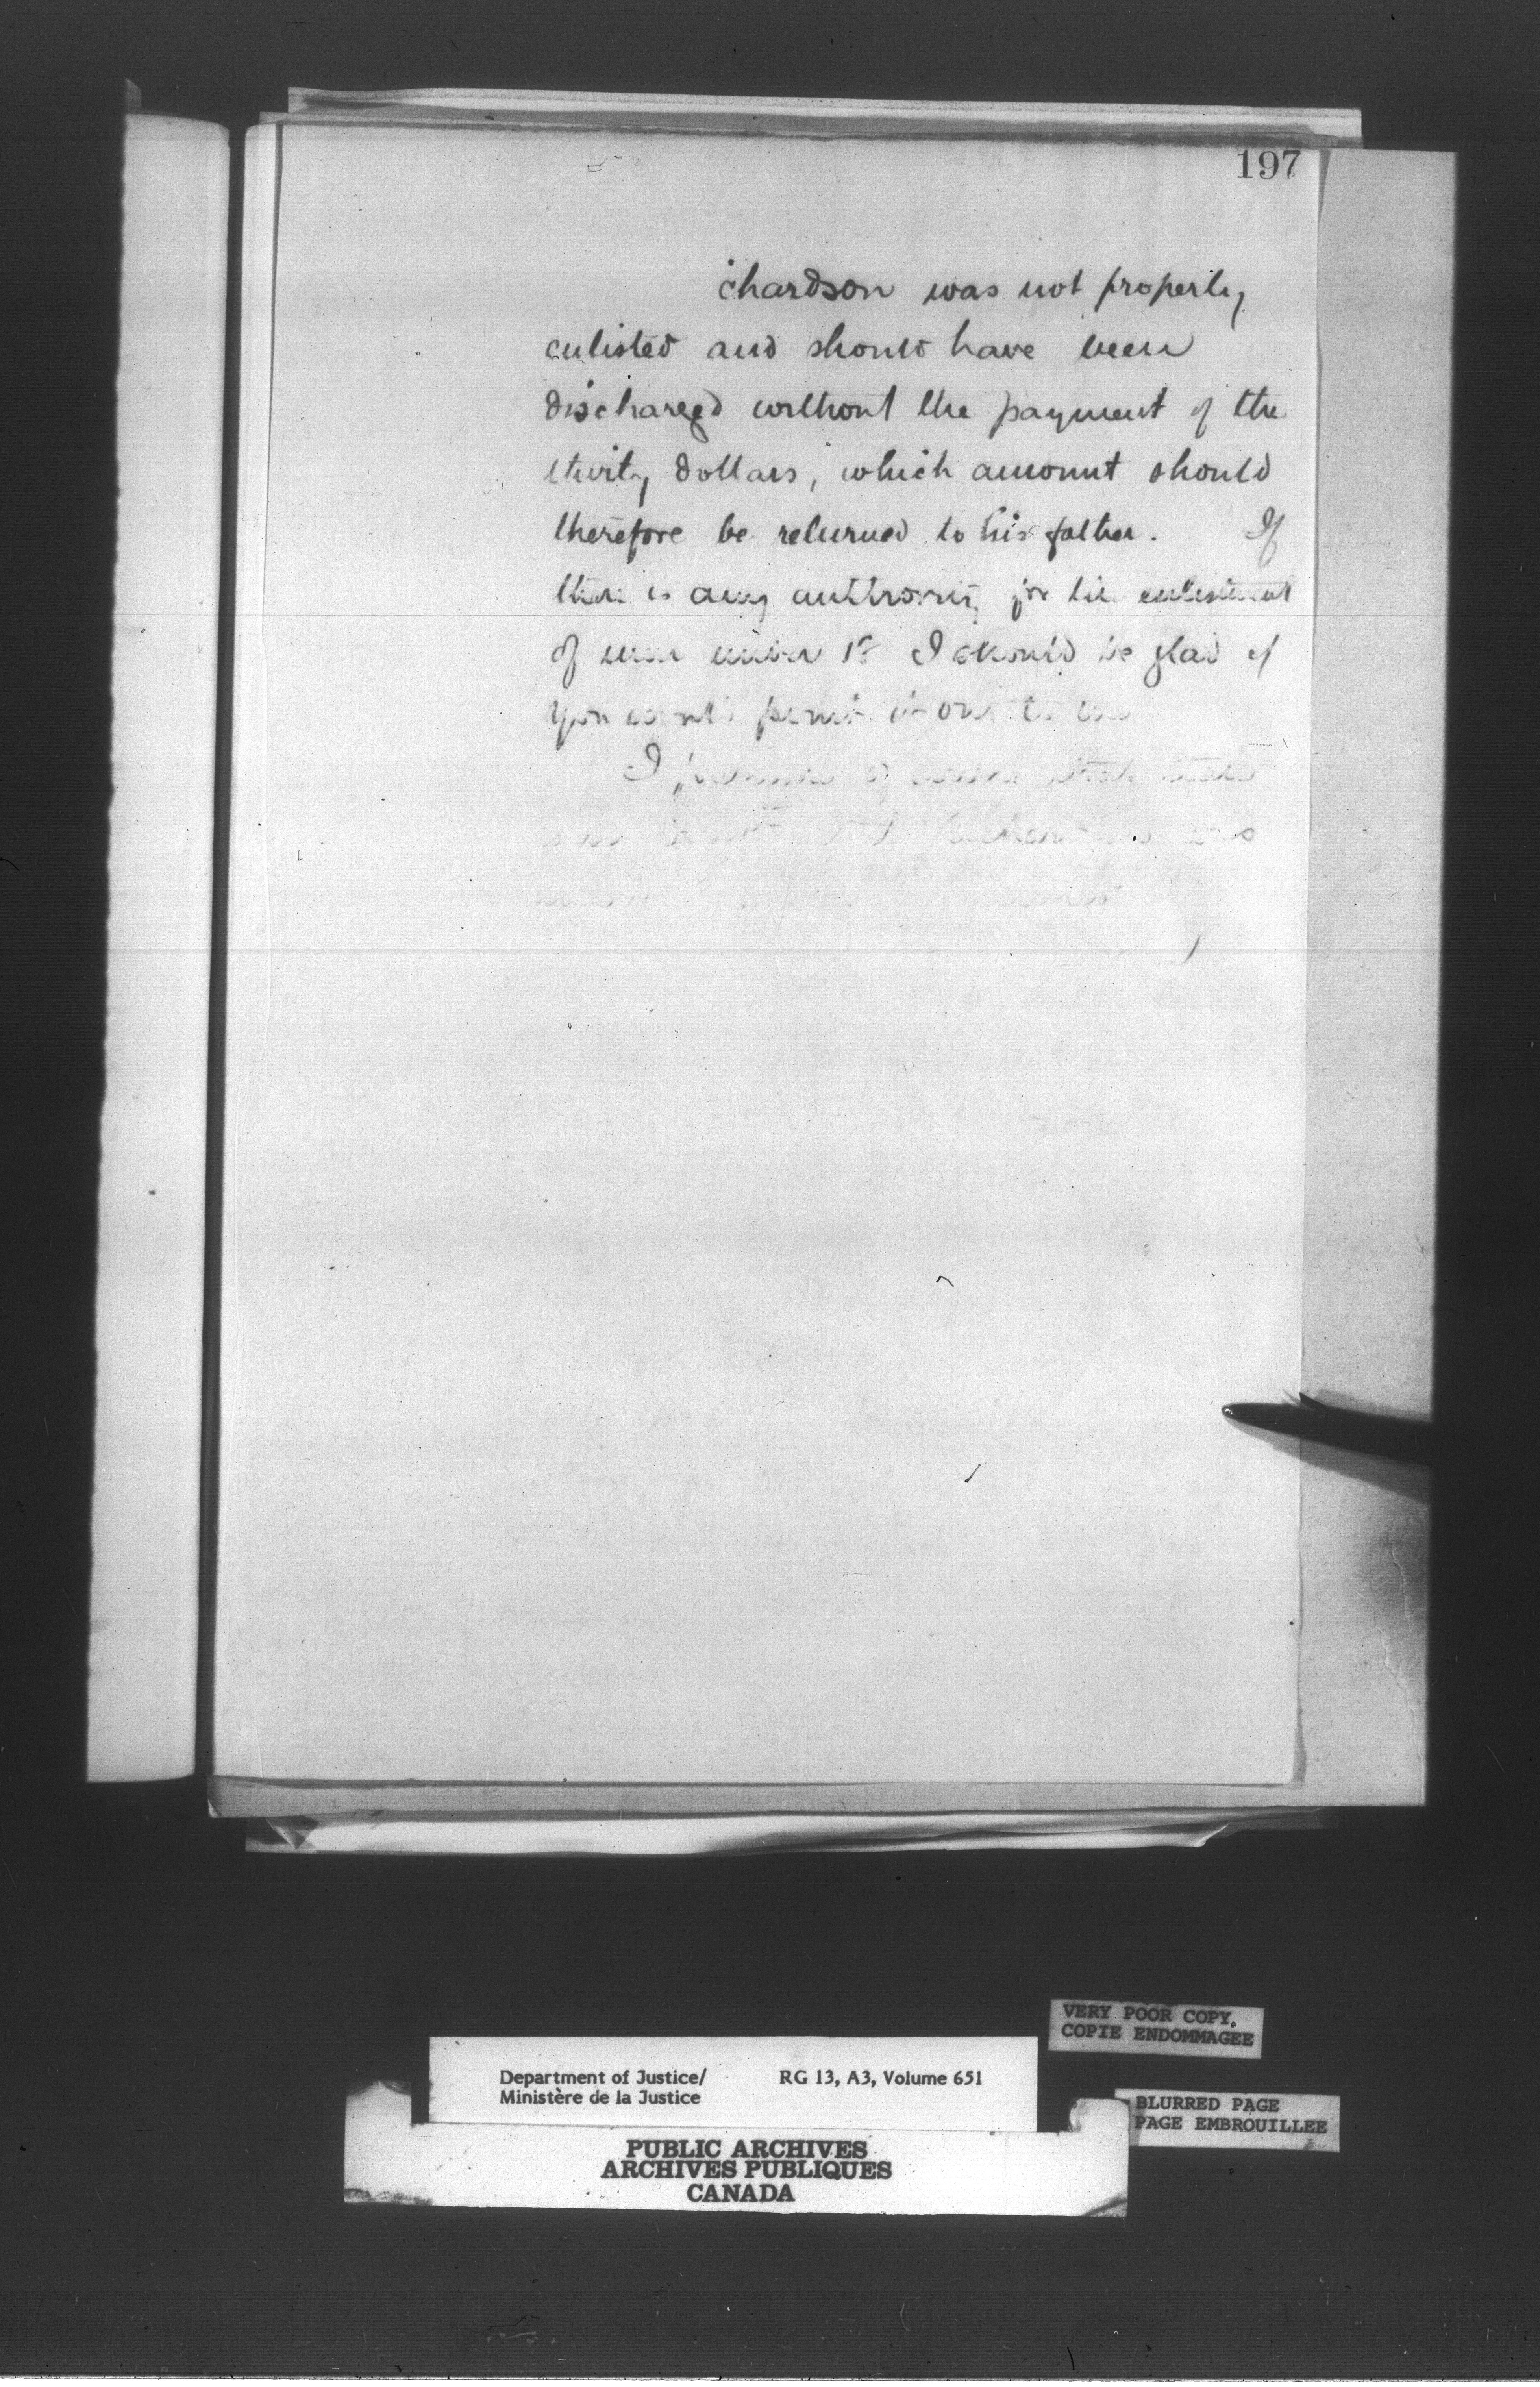 197
ichardson was not properly
enlisted and should have been
discharged without the payment of the
thirty dollars, which amount should
therefore be returned to his father. If
there is any authority for the enlistment
of men under 18 I should be glad if
you would point it out to me
I presume of course that
VERY POOR COPY.
COPIE ENDOMMAGEE
Department of Justice/ RG 13, A3, Volume 651
Ministère de la Justice
BLURRED PAGE
PAGE EMBROUILLEE
PUBLIC ARCHIVES
ARCHIVES PUBLIQUES
CANADA